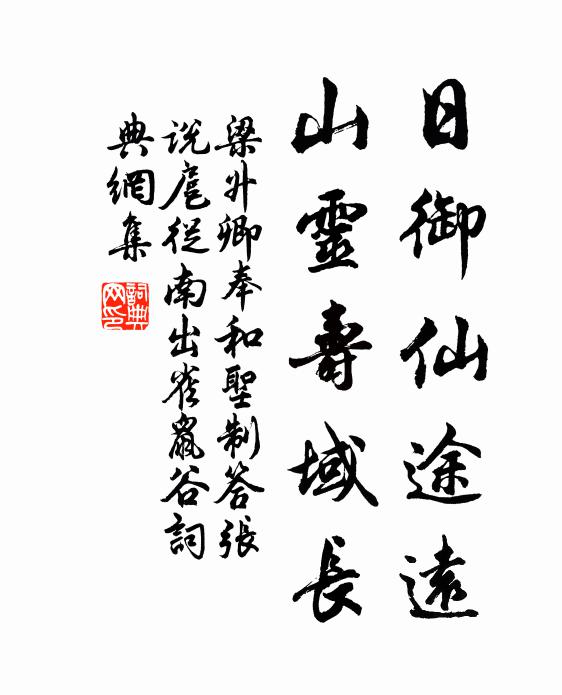 日御仙途遠
山靈壽域長
梁升卿奉和聖制答張
説扈從南出雀鼠谷詞
典網集
詞典网印